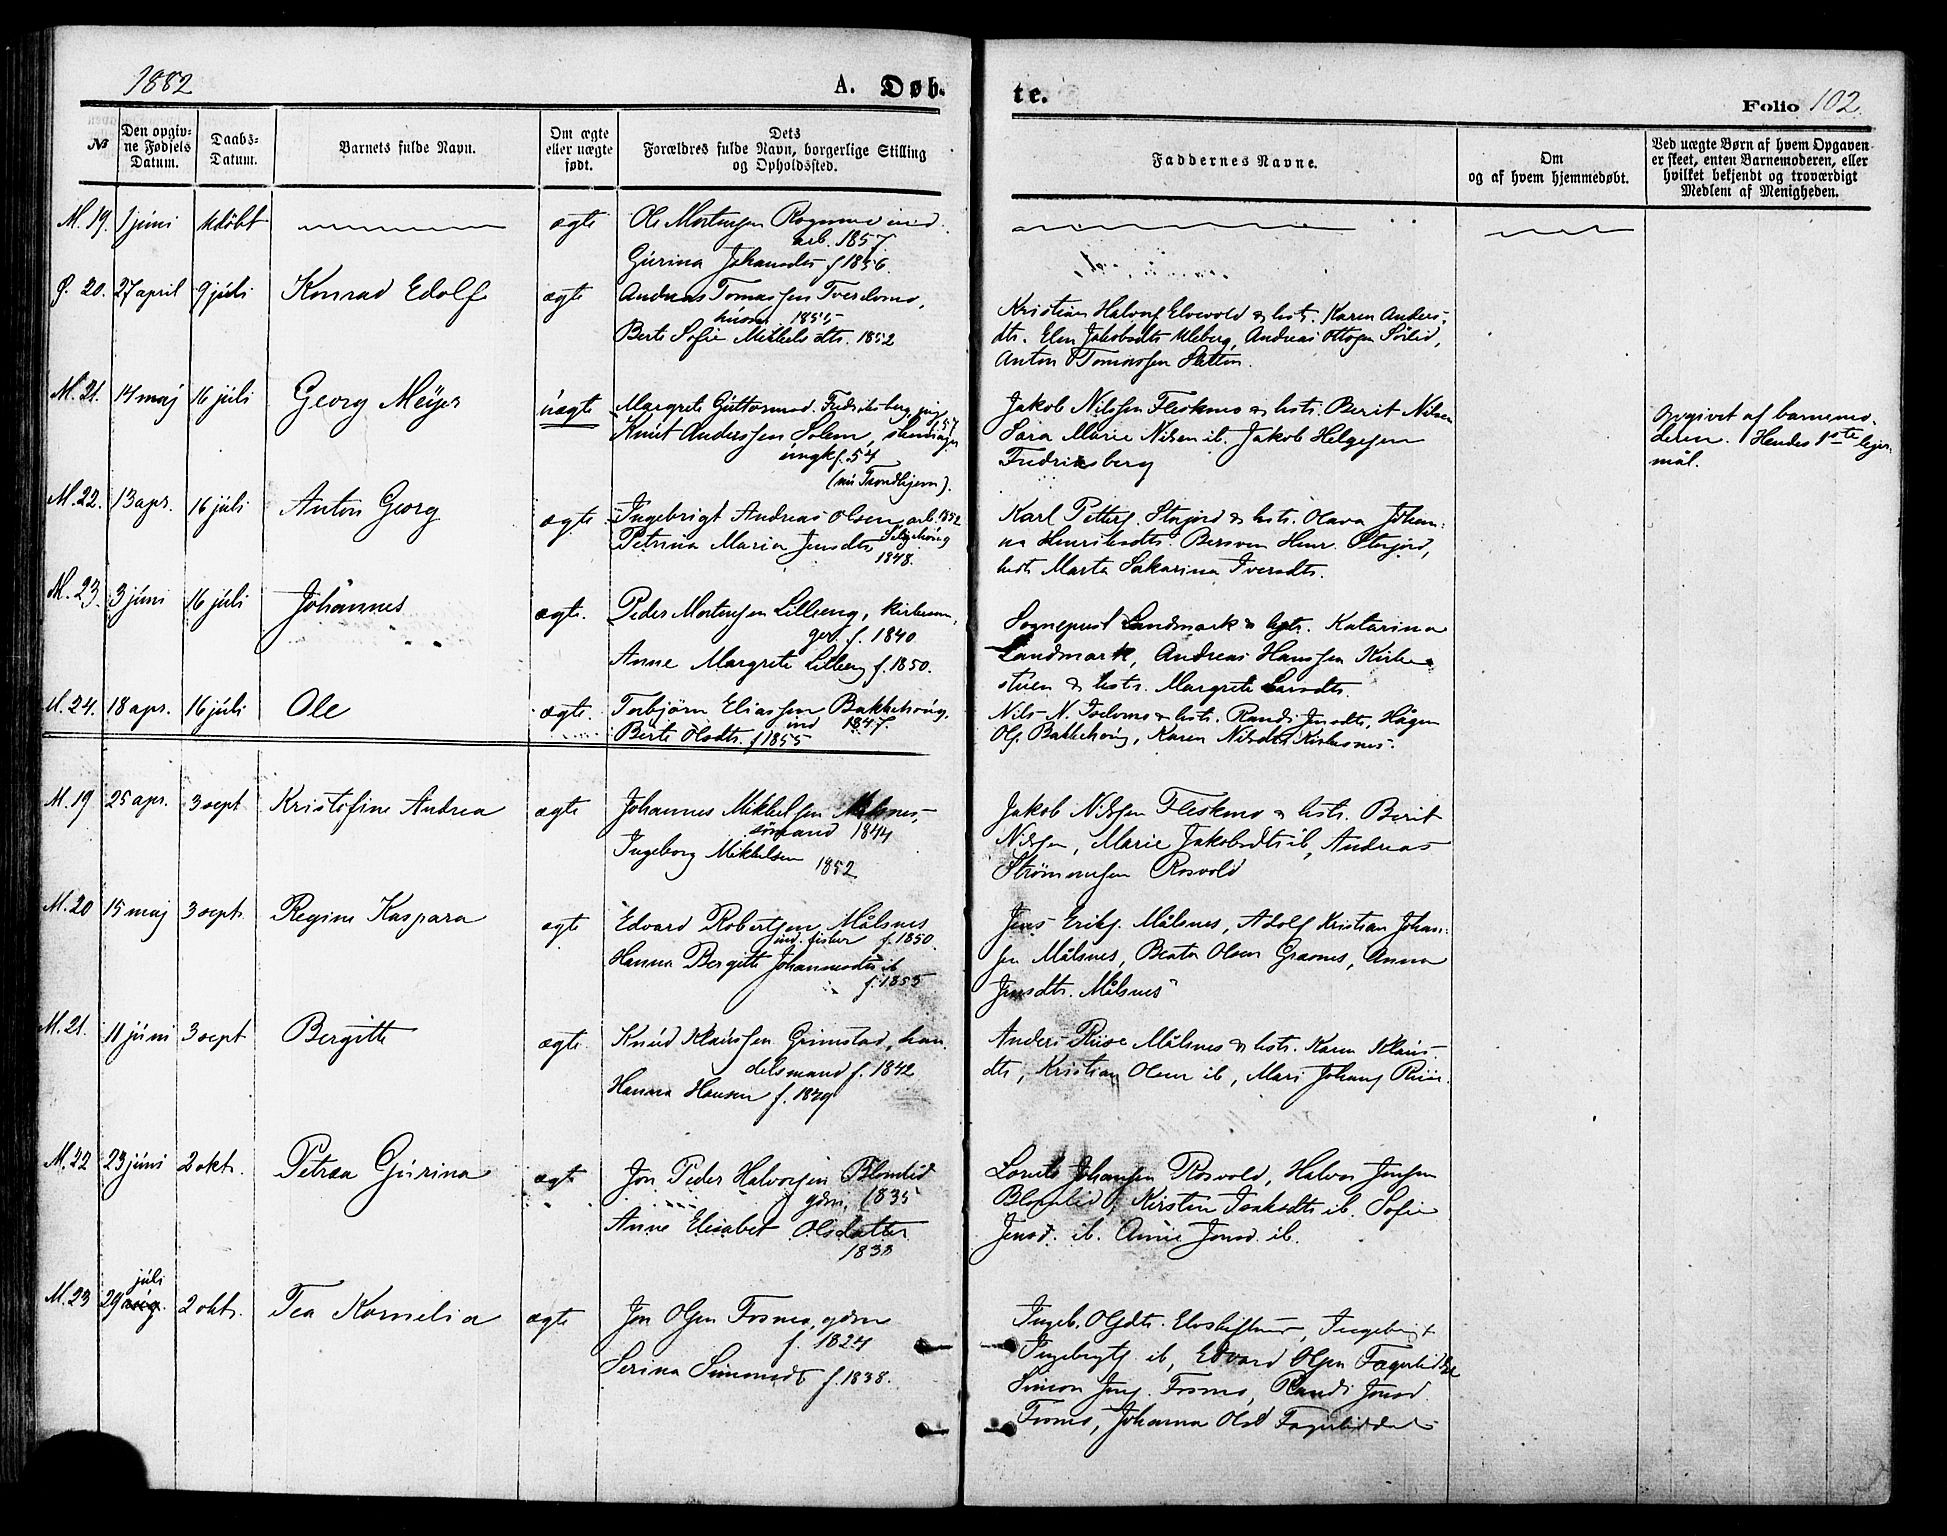 1882
A. Døb-
te.
Folio 102.
№
Den opgiv-
ne Fødsels
Datum.
Daabs-
Datum.
Barnets fulde Navn.
Om ægte
eller uægte
født.
Dets
Forældres fulde Navn, borgerlige Stilling
og Opholdssted.
Faddernes Navne.
Om
og af hvem hjemmedøbt.
Ved uægte Børn af hvem Opgaven
er skeet, enten Barnemoderen, eller
hvilket bekjendt og troværdigt
Medlem af Menigheden.
M. 19. 1 juni udöbt ægte Ole Mortensen
arb. 1857
Gurina Johansdtr f 1856.
20. 27 april 9 juli Konrad Edolf ægte Andreas Tomassen
husm. 1855
Berte Sofie Mikkelsdtr. 1852
Kristian Halvorss Elvevold & hstr. Karen Anders-
dtr. Elen Jakobsdtr Uleberg, Andreas Ottosen Sörlid,
Anton Tomassen
M. 21. 14 maj 16 juli Georg Meÿer uægte Margrete Guttormsd. Fredriksberg, pige
57
Knut Anderssen Solem,
ungk f. 54
(nu Trondhjem).
Jakob Nilssen Fleskmo & hstr. Berit Nilsen
Sara Marie Nilsen ib. Jakob Helgesen
Fredriksberg
Opgivet af barnemo-
deren. Hendes 1ste leier-
mål.
M. 22. 13 apr. 16 juli Anton Georg ægte. Ingebrigt Andreas Olsen, arb. 1852
Petrina Maria Jensdtr
1848.
Karl Petters. Storjord & hstr. Olava Johan-
na Henriksdtr. Bersven Henr. Storjord,
hstr Marta Sakarina Iversdtr.
M. 23. 3 juni 16 juli Johannes ægte. Peder Mortensen Lilleeng, kirkesan-
ger. f. 1840
Anne Margrete Lilleeng f. 1850.
Sogneprest Landmark & hstr. Katarina
Landmark, Andreas Hanssen Kirke-
stuen & hstr. Margrete Larsdtr.
M. 24. 18 apr. 16 juli Ole ægte. Torbjörn Eliassen Bakkehaug,
ind 1847.
Berte Olsdtr. f 1855
Nils N. & hstr. Randi Jensdtr, Hågen
Ols. Bakkehaug, Karen Nilsdtr Kirkesnes.
M. 19 25 apr. 3 sept. Kristofine Andrea ægte Johannes Mikkelsen Målsnes,
sömand 1844
Ingeborg Mikkelsen 1852
Jakob Nilssen Fleskmo & hstr. Berit
Nilssen, Marie Jakobsdtr ib, Andreas
Strömmesen Rosvold
M. 20 15 maj 3 sept. Regine Kaspara ægte Edvard Robertsen Målsnes
ind. fisker f. 1850.
Hanna Bergitte Johannesdtr ib
f. 1855
Jens Eriks. Målsnes, Adolf Kristian Johan-
sen Målsnes, Beata Olsen Grasnes, Anna
Jensdtr. Målsnes
M. 21. 11 juni 3 sept Bergitte ægte Knud Klaussen Grimstad, han-
delsmand f. 1842
Hanna Hansen f. 1849
Anders Riise Målsnes & hstr. Karen Klaus-
dtr, Kristian Olsen ib, Mari Johans Riise.
M. 22 23 juni 2 okt. Petraa Gurina ægte Jon Peder Halvorsen Blomlid
gdm. 1835
Anne Elisabet Olsdatter
1838
Lorents Johansen Rosvold, Halvor Jensen
Blomlid, Kirsten Isaksdtr ib. Sofie
Jensd. ib. Anne Jonsd. ib.
M. 23 29 juli 2 okt. Tea Kornelia ægte Jon Olsen Fosmo, gdm
f. 1824
Serina Simonsdtr f. 1838.
Ingeb. Olsdtr. Elveskiftnes, Ingebrigt
Ingebrigts. ib, Edvard Olsen Fagerliddal
Simon Jons. Fosmo, Randi Jonsd
Fosmo, Johanna Olsd Fagerliddal